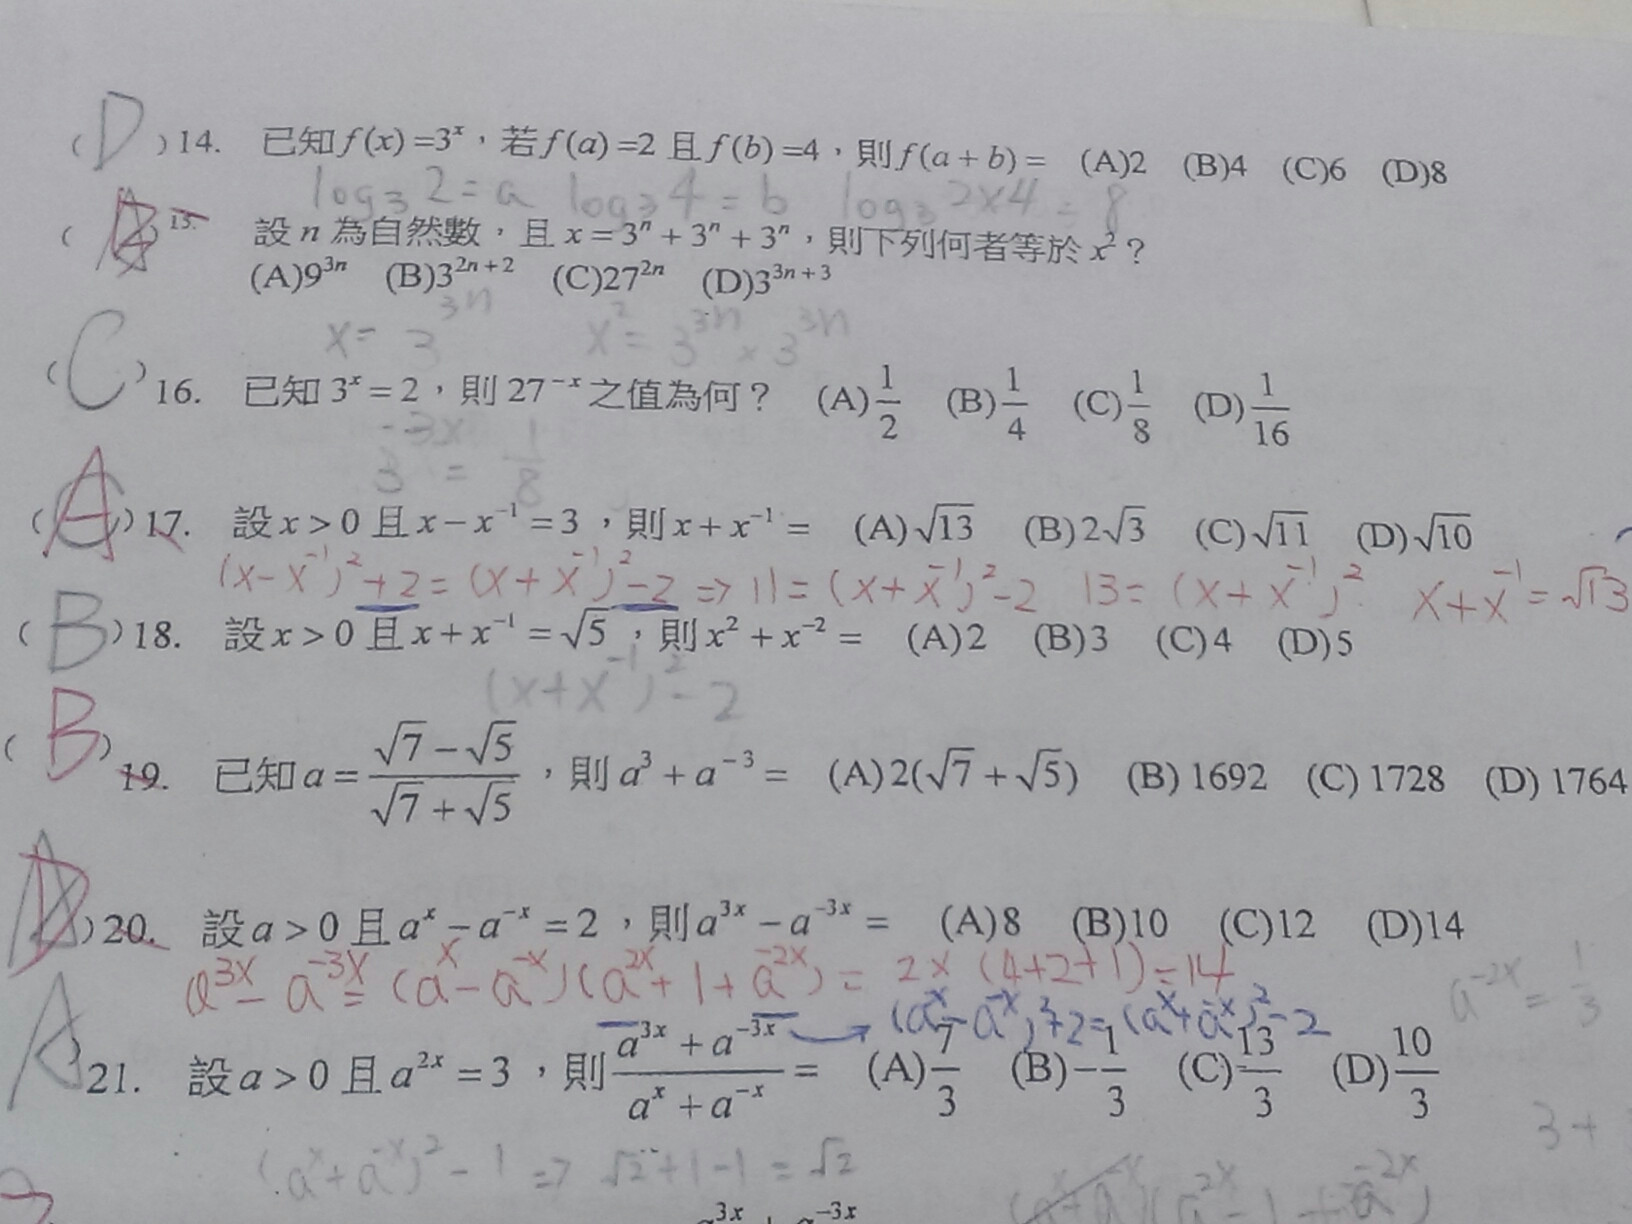 (D)14. 已知f(x)=3ˣ,若f(a)=2且f(b)=4,則f(a+b)= (A)2 (B)4 (C)6 (D)8
log₃2=a log₃4=b log₃2×4=8
( )15. 設n為自然數,且x=3ⁿ+3ⁿ+3ⁿ,則下列何者等於x²?
(A)9³ⁿ (B)3²ⁿ⁺² (C)27²ⁿ (D)3³ⁿ⁺³
x=3³ⁿ x²=3³ⁿ×3³ⁿ
(C)16. 已知3ˣ=2,則27⁻ˣ之值為何? (A)1/2 (B)1/4 (C)1/8 (D)1/16
3⁻³ˣ=1/8
(A)17. 設x>0且x-x⁻¹=3,則x+x⁻¹= (A)√13 (B)2√3 (C)√11 (D)√10
(x-x⁻¹)²+2=(x+x⁻¹)²-2⇒11=(x+x⁻¹)²-2 13=(x+x⁻¹)² x+x⁻¹=√13
(B)18. 設x>0且x+x⁻¹=√5,則x²+x⁻²= (A)2 (B)3 (C)4 (D)5
(x+x⁻¹)²-2
(B)19. 已知a=(√7-√5)/(√7+√5),則a³+a⁻³= (A)2(√7+√5) (B)1692 (C)1728 (D)1764
D)20. 設a>0且aˣ-a⁻ˣ=2,則a³ˣ-a⁻³ˣ= (A)8 (B)10 (C)12 (D)14
a³ˣ-a⁻³ˣ=(aˣ-a⁻ˣ)(a²ˣ+1+a⁻²ˣ)=2×(4+2+1)=14
a⁻²ˣ=1/3
(aˣ-a⁻ˣ)²+2=(aˣ+a⁻ˣ)²-2
A)21. 設a>0且a²ˣ=3,則(a³ˣ+a⁻³ˣ)/(aˣ+a⁻ˣ)= (A)7/3 (B)-1/3 (C)13/3 (D)10/3
3+
(aˣ+a⁻ˣ)²-1⇒√2+1-1=√2
(aˣ+a⁻ˣ)(a²ˣ-1+a⁻²ˣ)
a³ˣ+a⁻³ˣ